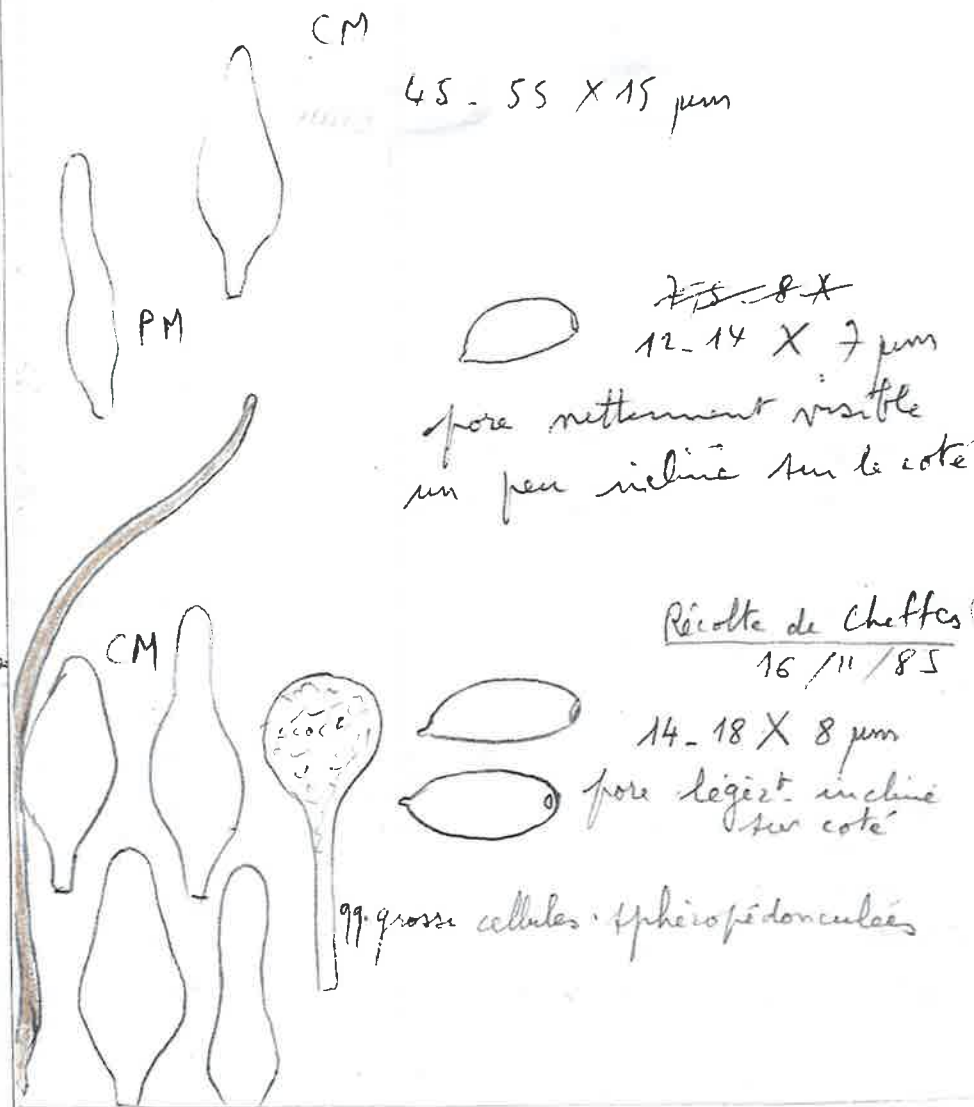 CM
45 - 55 X 15 µm
PM
7,5 - 8 X
12 - 14 X 7 µm
pore nettement visible
un peu incliné sur le coté
CM
Récolte de Cheffes
16/11/85
14 - 18 X 8 µm
pore légèrt. incliné
sur coté
qq. grosse cellules sphéropédonculées